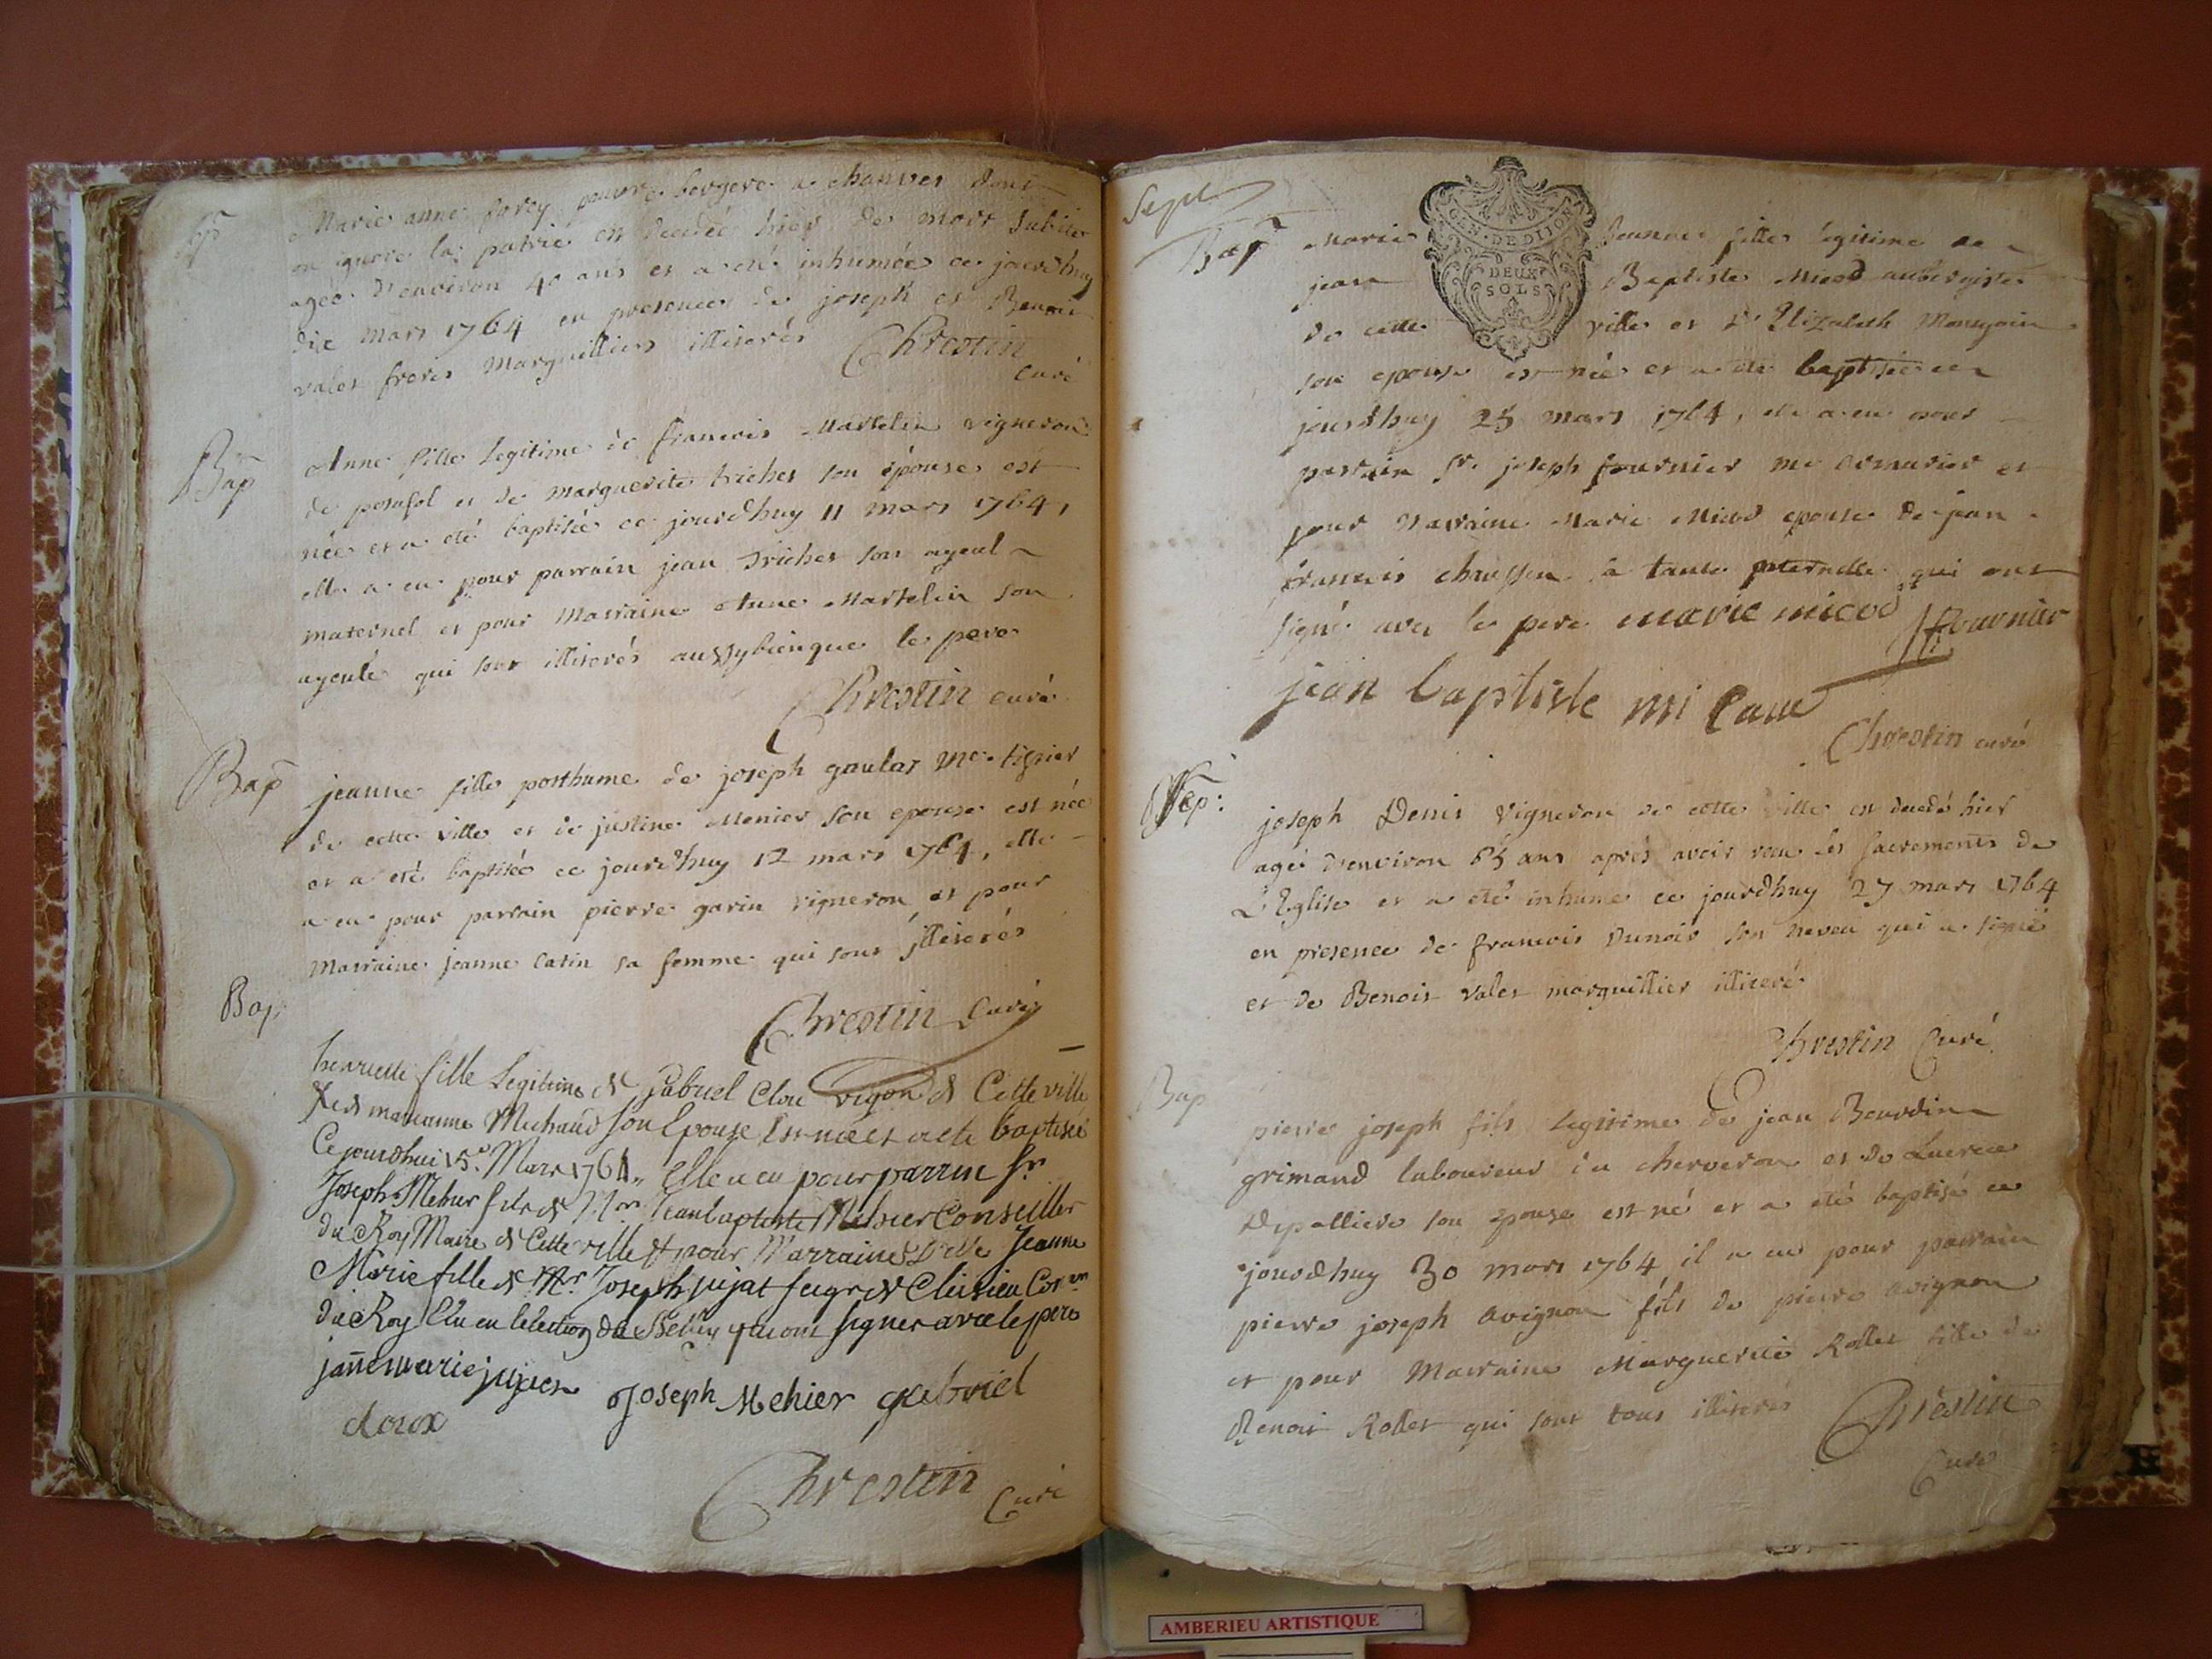 Sep
Marie anne forey pauvre bergere a chauves dont
on ignore la patrie est decedée hier de mort subite
agée d'environ 40 ans et a eté inhumée ce jourdhuy
dix mars 1764 en presence de joseph et Benoit
valet freres Marguilliers illiterés Chrestin
curé
Bap
Anne fille legitime de francois Martelin vigneron
de posafol et de marguerite trichet son épouse est
née et a eté baptisée ce jourdhuy 11 mars 1764,
elle a eu pour parrain jean trichet son ayeul
maternel et pour Marraine Anne Martelin son
ayeule qui sont illiterés aussybienque le pere
Chrestin curé
Bap
jeanne fille posthume de joseph gaulas me. tissier
de cette ville et de justine Menier son epouse est née
et a eté baptisée ce jourdhuy 12 mars 1764, elle
a eu pour parrain pierre garin vigneron et pour
Marraine jeanne catin sa femme qui sont illiterés
Chrestin Curé
Bap
henriette fille Legitime de gabriel Clou vigon de Cette ville
& de marianne Michaud son Epouse Est née et a ete baptisée
Cejourdhui 15e. Mars 1764,, Elle a eu pour parrin Sr.
Joseph Mehier fils de Mr. Jean baptiste Mehier Conseiller
du Roy Maire de Cette ville & pour Marraine Dlle Jeanne
Marie fille de Mr. Joseph jujat seigr de Cleisieu Con.er
du Roy Elu en lelection de Belley qui ont signes avec le pere
janne marie jujat Joseph Mehier gabriel
cloux
Chrestin Curé
Sept
Bap
Marie Jeanne fille legitime de
GEN. DE DIJON
DEUX
SOLS
jean Baptiste Micod aubergiste
de cette ville et d'Elizabeth Mongoin
son epouse est née et a eté baptisée ce
jourdhuy 25 mars 1764, elle a eu pour
parrain Sr. joseph fournier me armurier et
pour Marraine Marie Micod epouse de jean
francois chaussen sa tante paternelle qui ont
signé avec le pere marie micod jffournier
jean baptiste mi Caud
Chrestin curé
Sep:
joseph Denis vigneron de cette ville est decedé hier
agé d'environ 65 ans après avoir reçu les sacrements de
L'Eglise et a eté inhumé ce jourdhuy 27 mars 1764
en presence de francois Dunoir son neveu qui a signé
et de Benoit valet marguillier illiteré
Chrestin Curé
Bap
pierre joseph fils legitime de jean Bourdin
grimand laboureur du cherveron et de Lucrece
Depalliere son épouse est né et a eté baptisé ce
jourdhuy 30 mars 1764 il a eu pour parrain
pierre joseph avignon fils de pierre avignon
et pour Marraine Marguerite Rollet fille de
Benoit Rollet qui sont tous illiterés Chrestin
Curé
AMBERIEU ARTISTIQUE